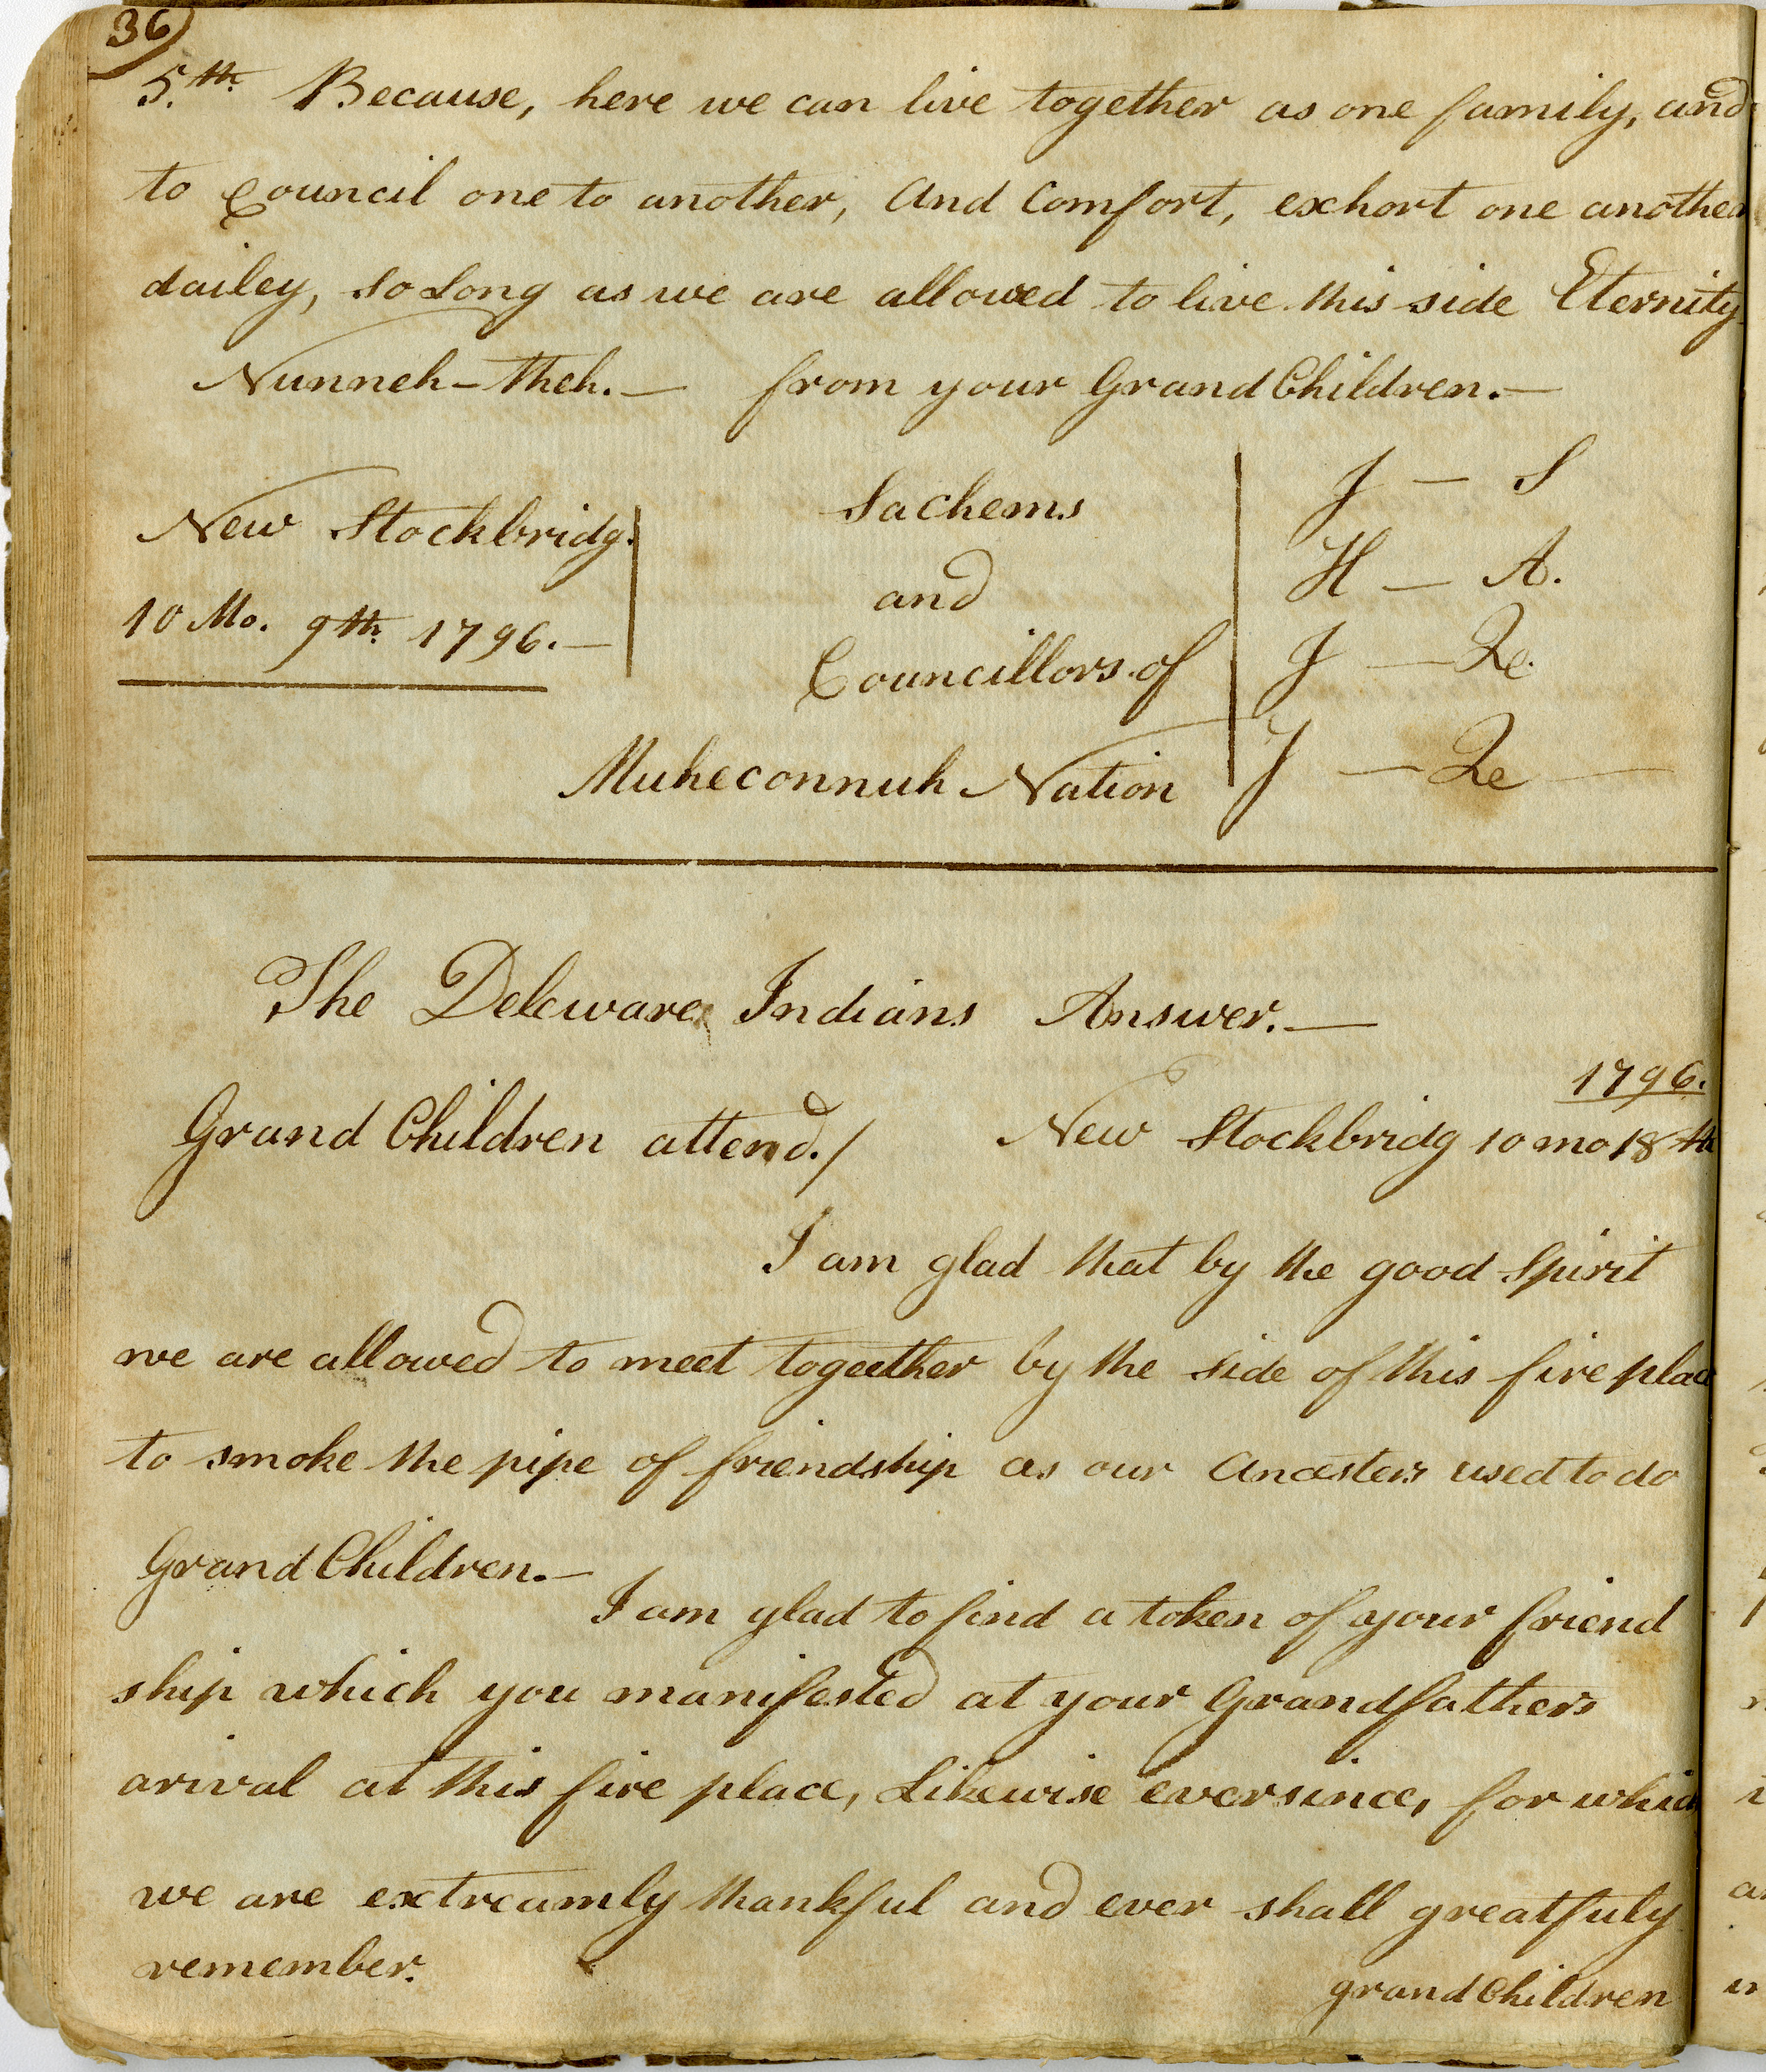 36)
5.th Because, here we can live together as one family, and
to Council one to another, And Comfort, exhort one another
dailey, so Long as we are allowed to live this side Eternity
Nunneh-theh.— from your Grand Children.—
New Stockbridg.
10 Mo. 9th 1796.—
Sachems
and
Councillors of
Muheconnuh Nation
J — S
H — A.
J — Qe.
J — Qe —
The Deleware Indians Answer.—
1796.
Grand Children attend./ New Stockbridg 10 mo 18 th
I am glad that by the good Spirit
we are allowed to meet togeether by the side of this fire plac
to smoke the pipe of friendship as our Ancesters used to do
Grand Children.—
I am glad to find a token of your friend
ship which you manifested at your Grandfathers
arival at this fire place, Likewise eversince, for which
we are extreamly thankful and ever shall greatfuly
remember.
grand Children